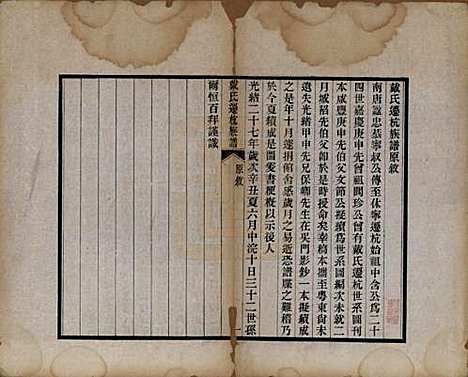 戴氏遷杭族譜原敘
南唐諡忠恭寧叔公傳至休寧遷杭始祖中含公為二十
四世嘉慶庚申先曾祖閬珍公曾有戴氏遷杭世系圖刊
本咸豐庚申先伯父文節公擬續為世系圖次未就二
月城陷先伯父卽於是時授命矣幸稿本攜至粵東尚未
遺失光緒甲申先兄保卿先生在吳門影鈔一本擬續成
之是年十月遂捐館舍感歲月之易逝恐譜牒之難稽乃
於今夏積成是圖爰書梗概以示後人
光緒二十七年歲次辛丑夏六月中浣十日三十二世孫
爾恒百拜謹識
戴氏遷杭族譜 原敘 一